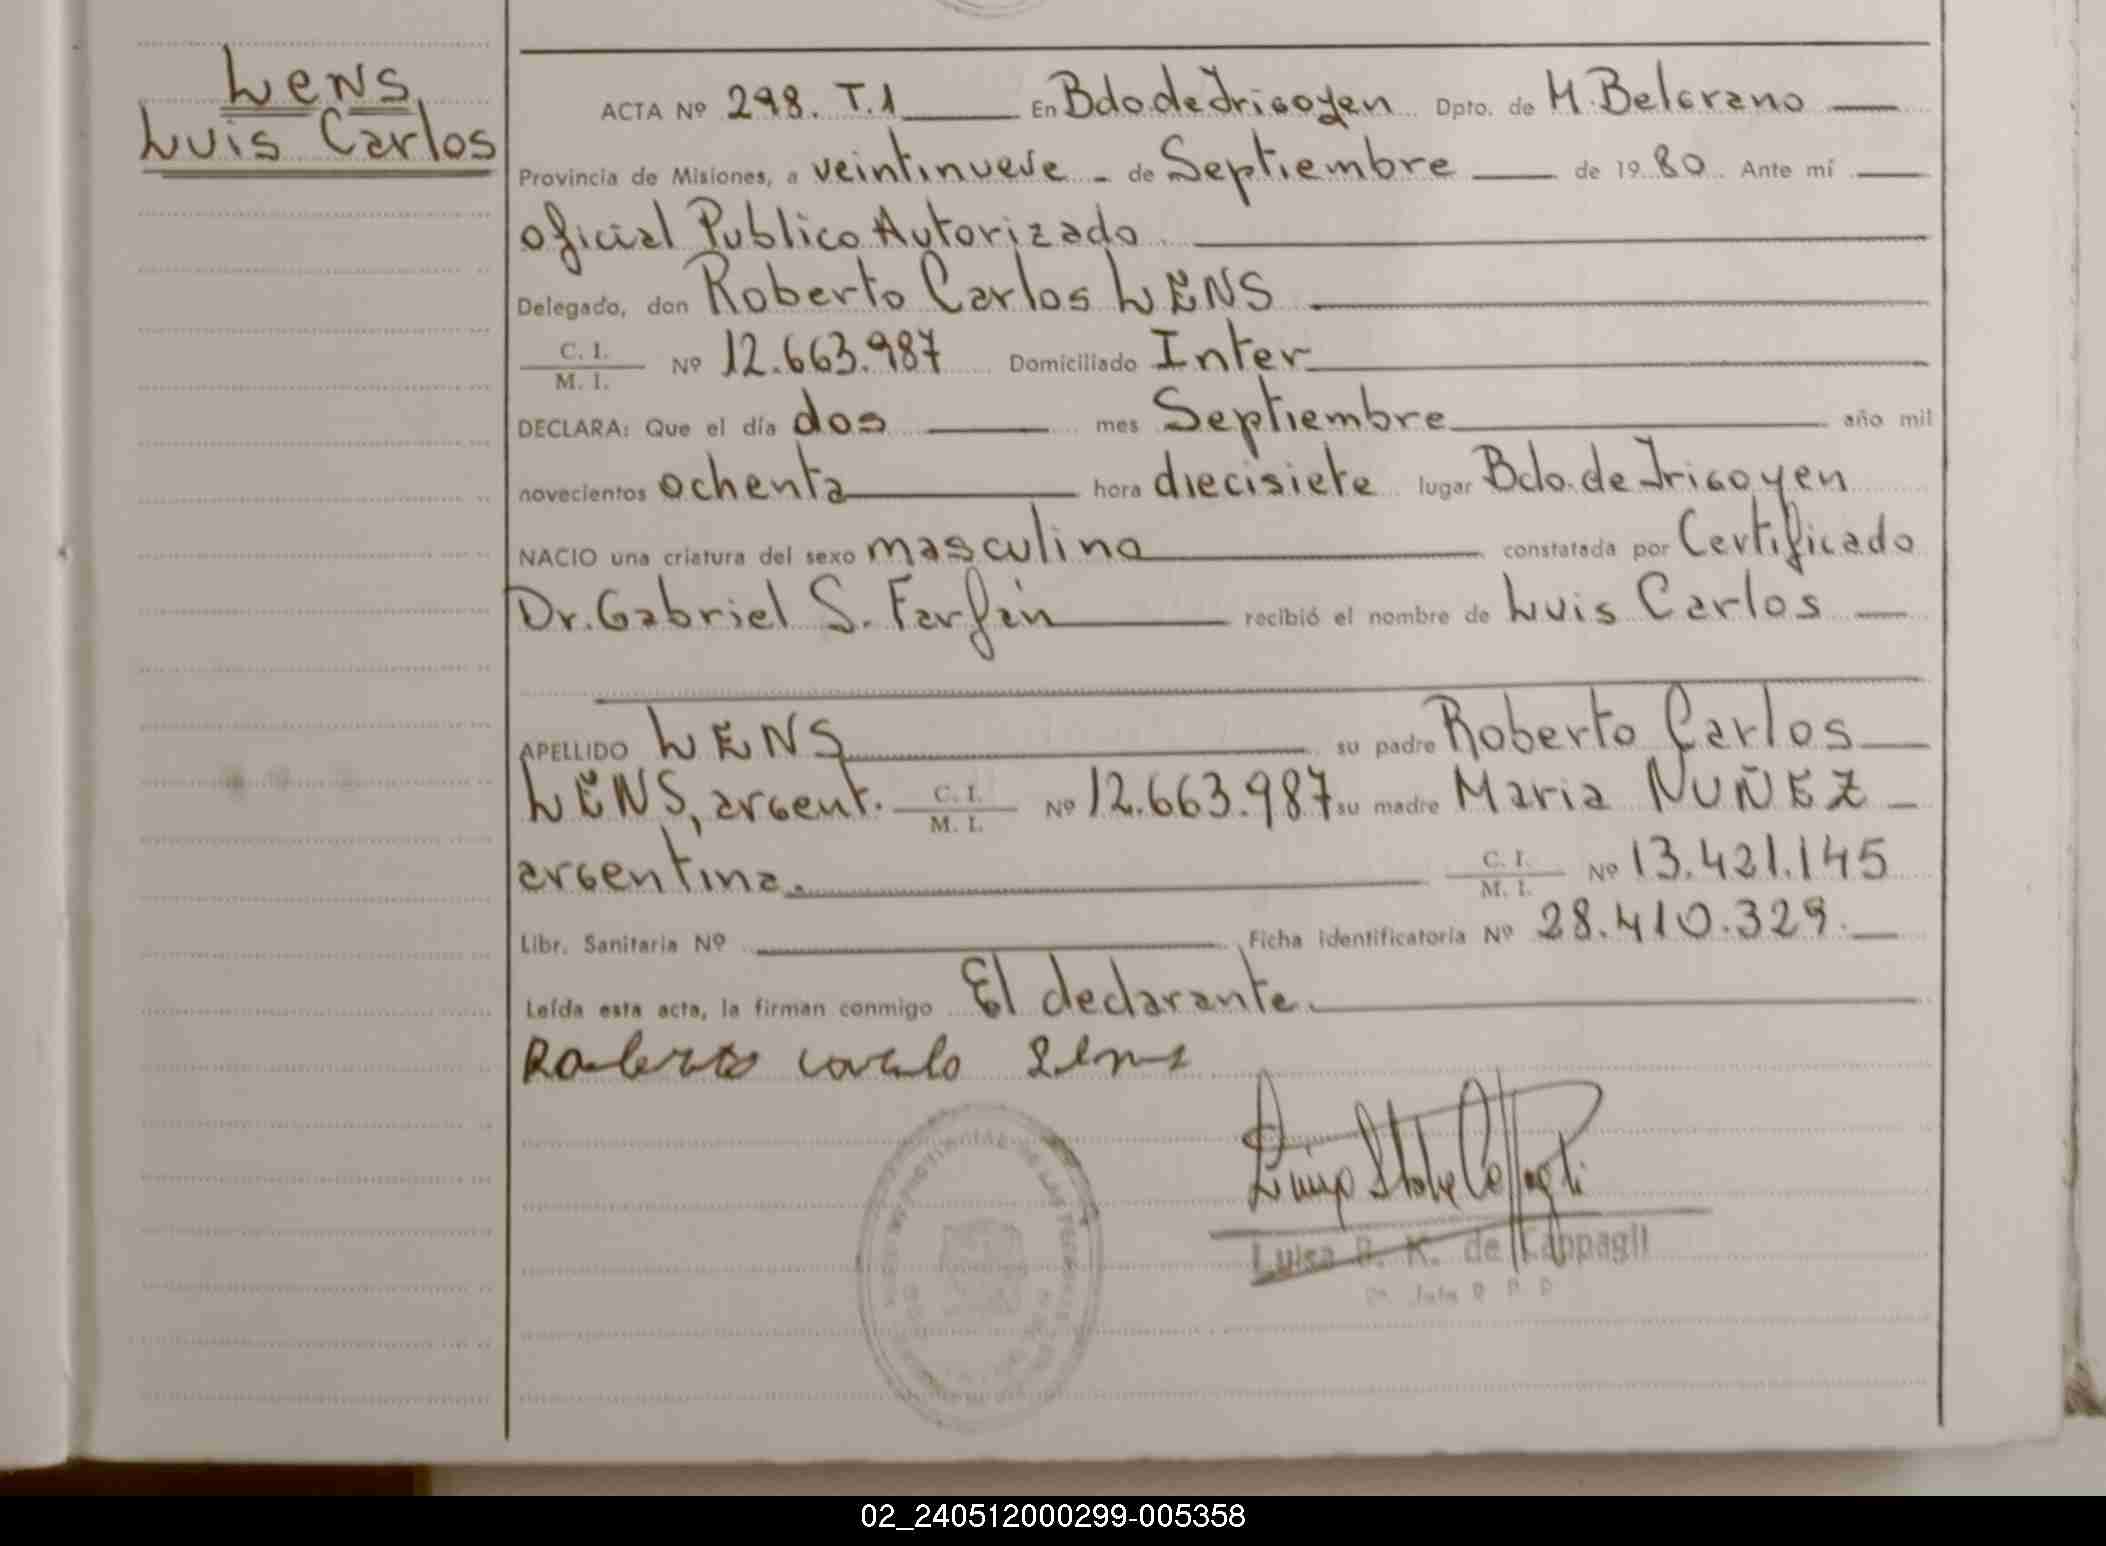 Lens
Luis Carlos
ACTA Nº 298. T.1 En Bdo.de Irigoyen Dpto. de M.Belgrano
Provincia de Misiones, a veintinueve - de Septiembre de 1980. Ante mí
oficial Publico Autorizado
Delegado, don Roberto Carlos LENS
C. I.
M. I. Nº 12.663.987 Domiciliado Inter
DECLARA: Que el día dos mes Septiembre año mil
novecientos ochenta hora diecisiete lugar Bdo.de Irigoyen
NACIO una criatura del sexo masculino constatada por Certificado
Dr.Gabriel S. Farfán recibió el nombre de Luis Carlos
APELLIDO LENS su padre Roberto Carlos
LENS, argent. C. I. M. I. Nº 12.663.987 su madre Maria NUÑEZ
argentina. C. I. M. I. Nº 13.421.145
Libr. Sanitaria Nº Ficha identificatoria Nº 28.410.329.
Leída esta acta, la firman conmigo El declarante
Roberto carlo Lens
Luisa B. K. de Cappagli
02_240512000299-005358